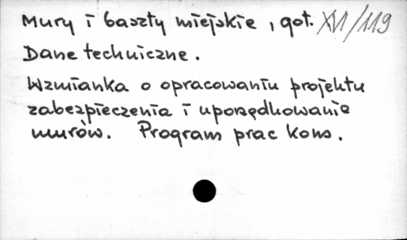 Mury i baszty miejskie, got. XVI/119
Dane techniczne.
Wzmianka o opracowaniu projektu
zabezpieczenia i uporządkowania
murów. Program prac kons.